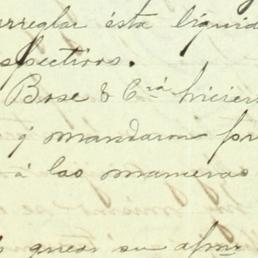 arreglar ésta liquid
spectivos.
Bose & Cra hicier
y mandaron por
á las maneras
s queda su afmo